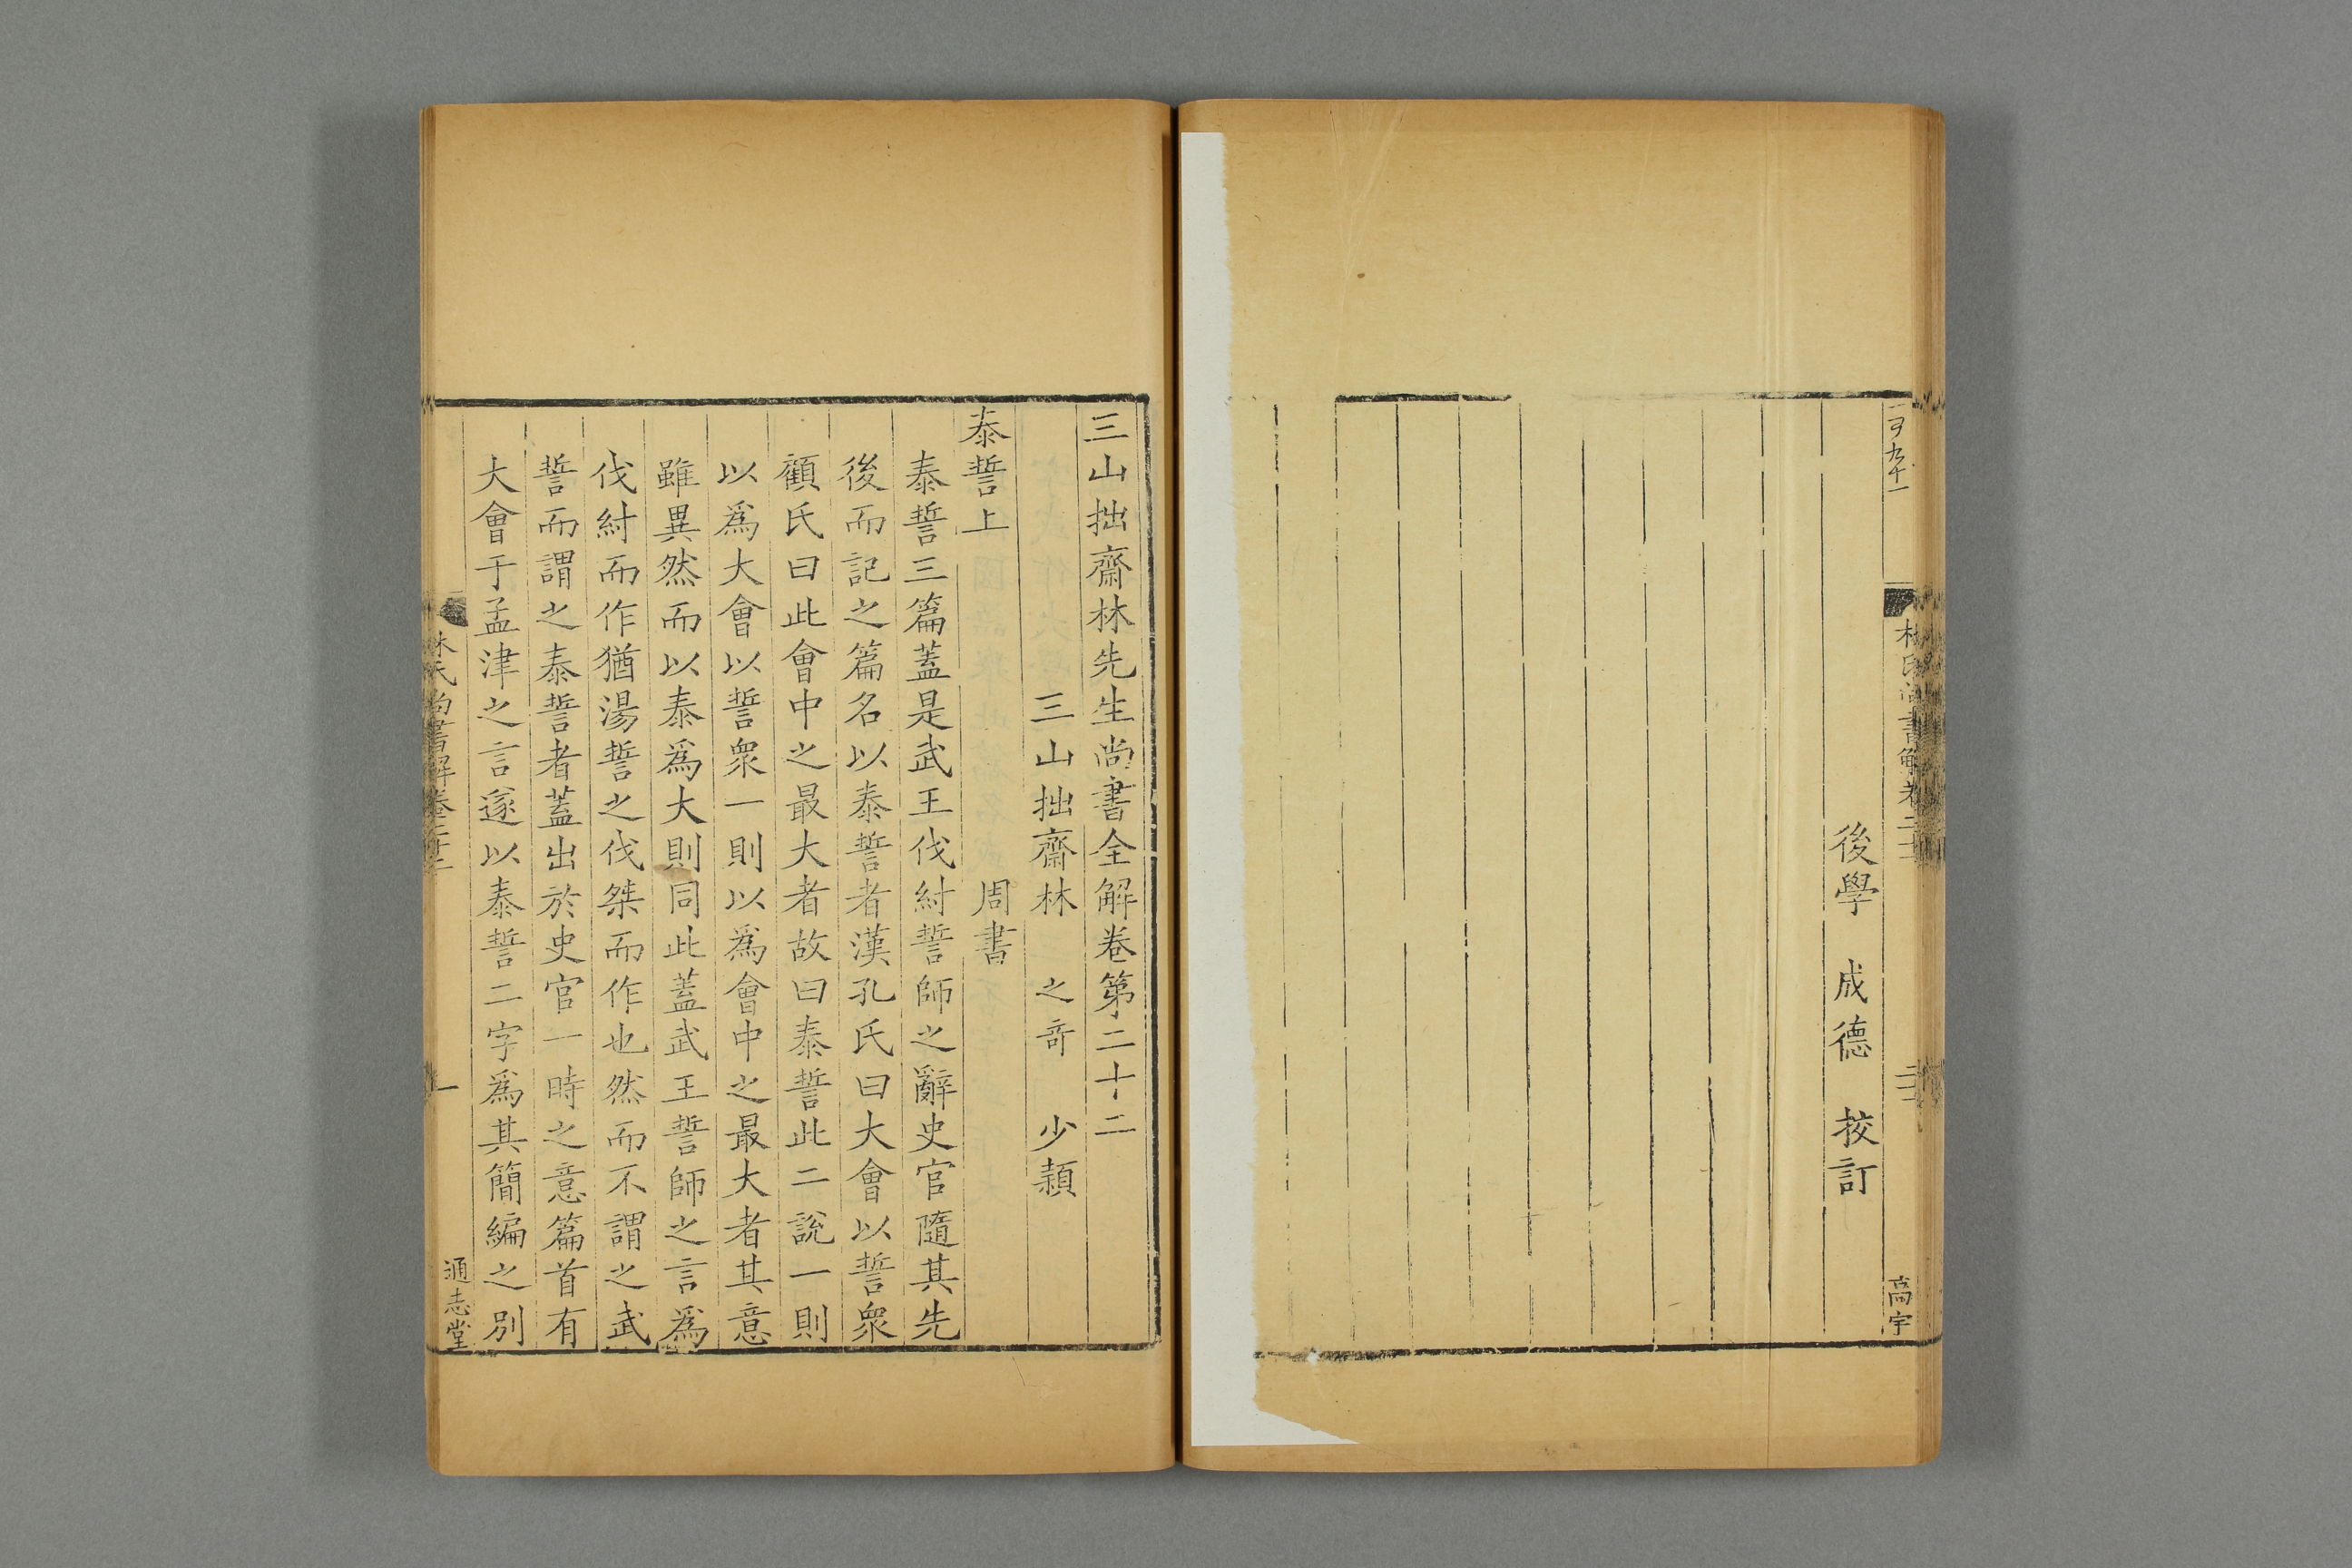 後學 成德 校訂
高宇
三山拙齋林先生尚書全解卷第二十二
三山拙齋林 之奇 少穎
泰誓上 周書
泰誓三篇蓋是武王伐紂誓師之辭史官隨其先
後而記之篇名以泰誓者漢孔氏曰大會以誓衆
顧氏曰此會中之最大者故曰泰誓此二說一則
以爲大會以誓衆一則以爲會中之最大者其意
雖異然而以泰爲大則同此蓋武王誓師之言爲
伐紂而作猶湯誓之伐桀而作也然而不謂之武
誓而謂之泰誓者蓋出於史官一時之意篇首有
大會于孟津之言遂以泰誓二字爲其簡編之別
林氏尚書解卷二十二
一
通志堂